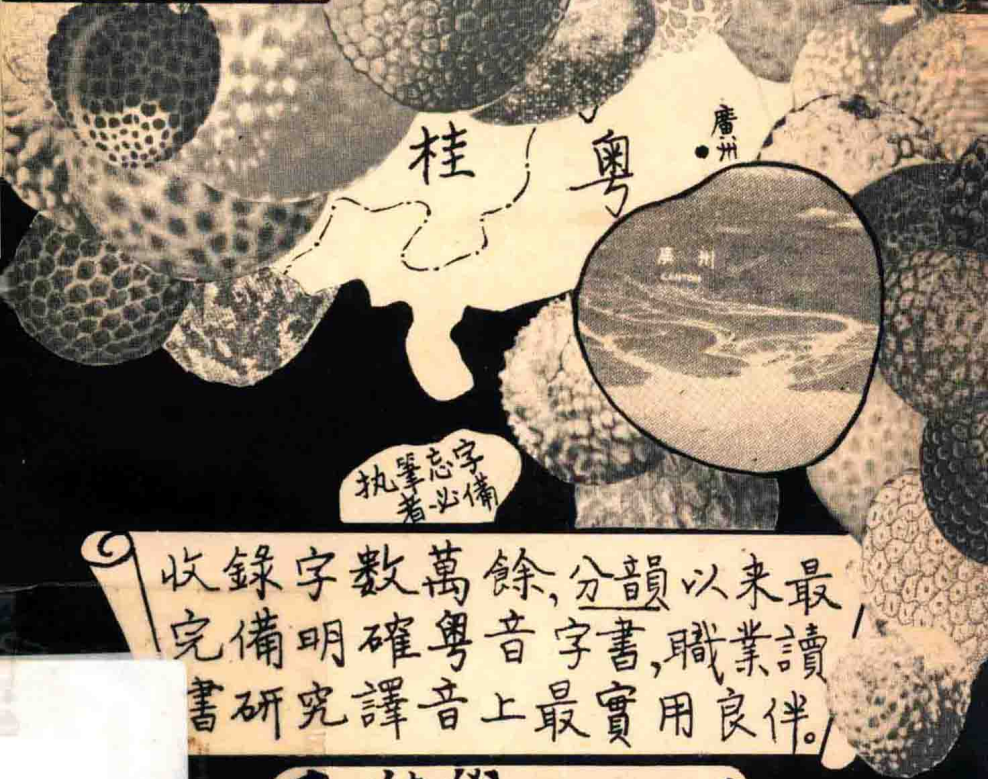 桂
粤
廣州
廣州
CANTON
执筆忘字
者必備
收錄字數萬餘,分韻以来最
完備明確粤音字書,職業讀
書研究譯音上最實用良伴。